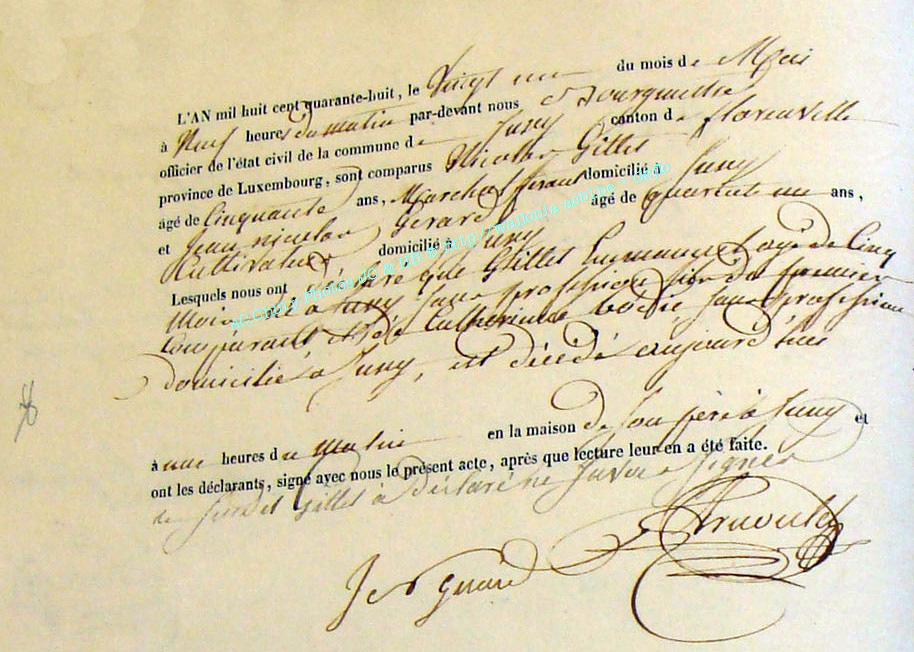 L'AN mil huit cent quarante-huit, le vingt un du mois de Mai
à Neuf heures du matin par-devant nous
officier de l'état civil de la commune de Suny canton de florenville
province de Luxembourg, sont comparus Nicolas Gilles
âgé de Cinquante ans, Marchal ferant domicilié à Suny
et Jean nicolas Gerard âgé de quarante un ans,
Cultivateur domicilié à Suny
Lesquels nous ont déclaré que Gilles Emmanuel agé de Cinq
mois né à Suny sans profession fils du premier
Comparant et de Catherinne sans profession
domicilié à Suny, est décédé aujourd'hui
à une heures du matin en la maison de son père à Suny et
ont les déclarants, signé avec nous le présent acte, après que lecture leur en a été faite.
Gilles à déclaré ne savoir signer
J N Gerard